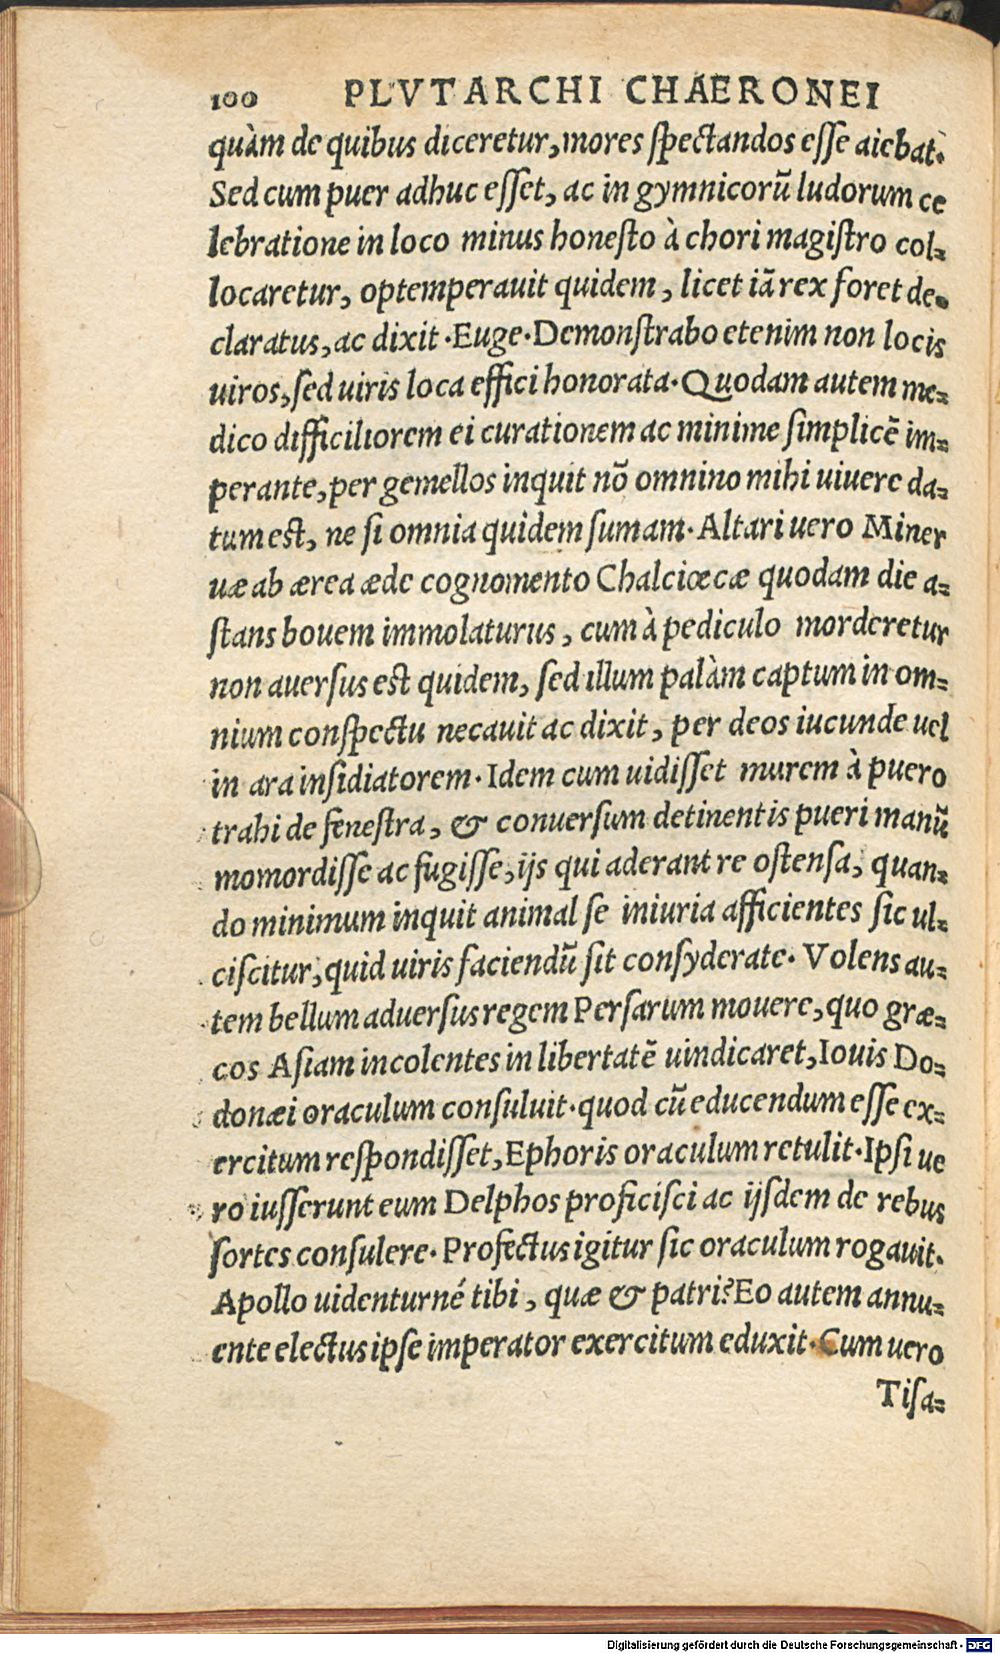 100 PLVTARCHI CHAERONEI
quàm de quibus diceretur, mores ſpectandos eſſe aiebat.
Sed cum puer adhuc eſſet, ac in gymnicorũ ludorum ce
lebratione in loco minus honeſto à chori magiſtro col-
locaretur, optemperauit quidem, licet iã rex foret de-
claratus, ac dixit. Euge. Demonſtrabo etenim non locis
uiros, ſed uiris loca effici honorata. Quodam autem me-
dico difficiliorem ei curationem ac minime ſimplicẽ im-
perante, per gemellos inquit nõ omnino mihi uiuere da-
tum eſt, ne ſi omnia quidem ſumam. Altari uero Miner
uæ ab ærea æde cognomento Chalciœcæ quodam die a-
ſtans bouem immolaturus, cum à pediculo morderetur
non auerſus eſt quidem, ſed illum palàm captum in om-
nium conſpectu necauit ac dixit, per deos iucunde uel
in ara inſidiatorem. Idem cum uidiſſet murem à puero
trahi de feneſtra, & conuerſum detinentis pueri manũ
momordiſſe ac fugiſſe, ijs qui aderant re oſtenſa, quan-
do minimum inquit animal ſe iniuria afficientes ſic ul-
ciſcitur, quid uiris faciendũ ſit conſyderate. Volens au-
tem bellum aduerſus regem Perſarum mouere, quo græ-
cos Aſiam incolentes in libertatẽ uindicaret, Iouis Do-
donæi oraculum conſuluit. quod cũ educendum eſſe ex-
ercitum reſpondiſſet, Ephoris oraculum retulit. Ipſi ue
ro iuſſerunt eum Delphos proficiſci ac ijſdem de rebus
ſortes conſulere. Profectus igitur ſic oraculum rogauit.
Apollo uidenturné tibi, quæ & patri? Eo autem annu-
ente electus ipſe imperator exercitum eduxit. Cum uero
Tiſa-
Digitalisierung gefördert durch die Deutsche Forschungsgemeinschaft - DFG